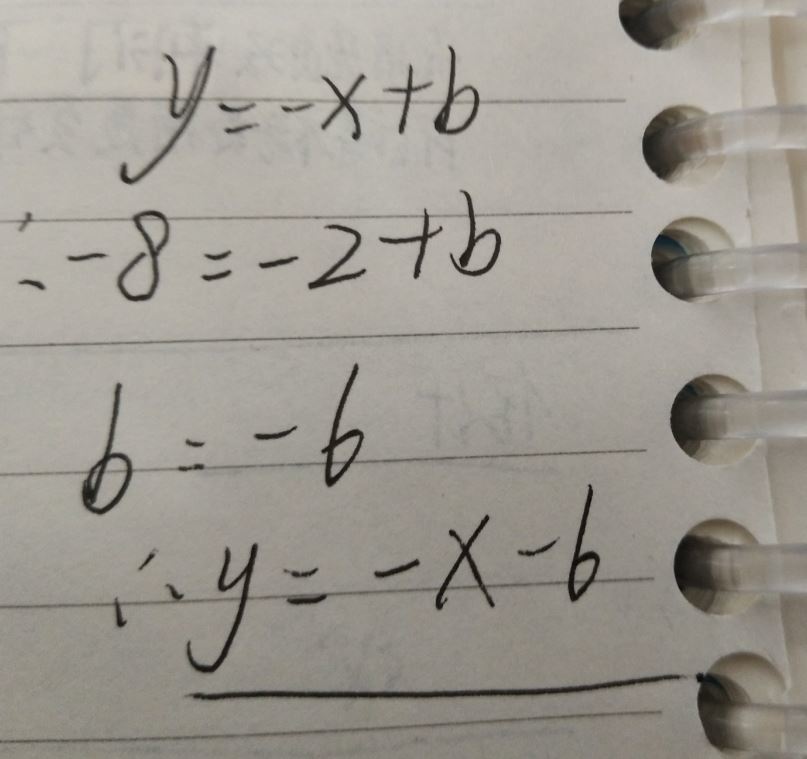 y=-x+b
∴-8=-2+b
b=-6
∴y=-x-6